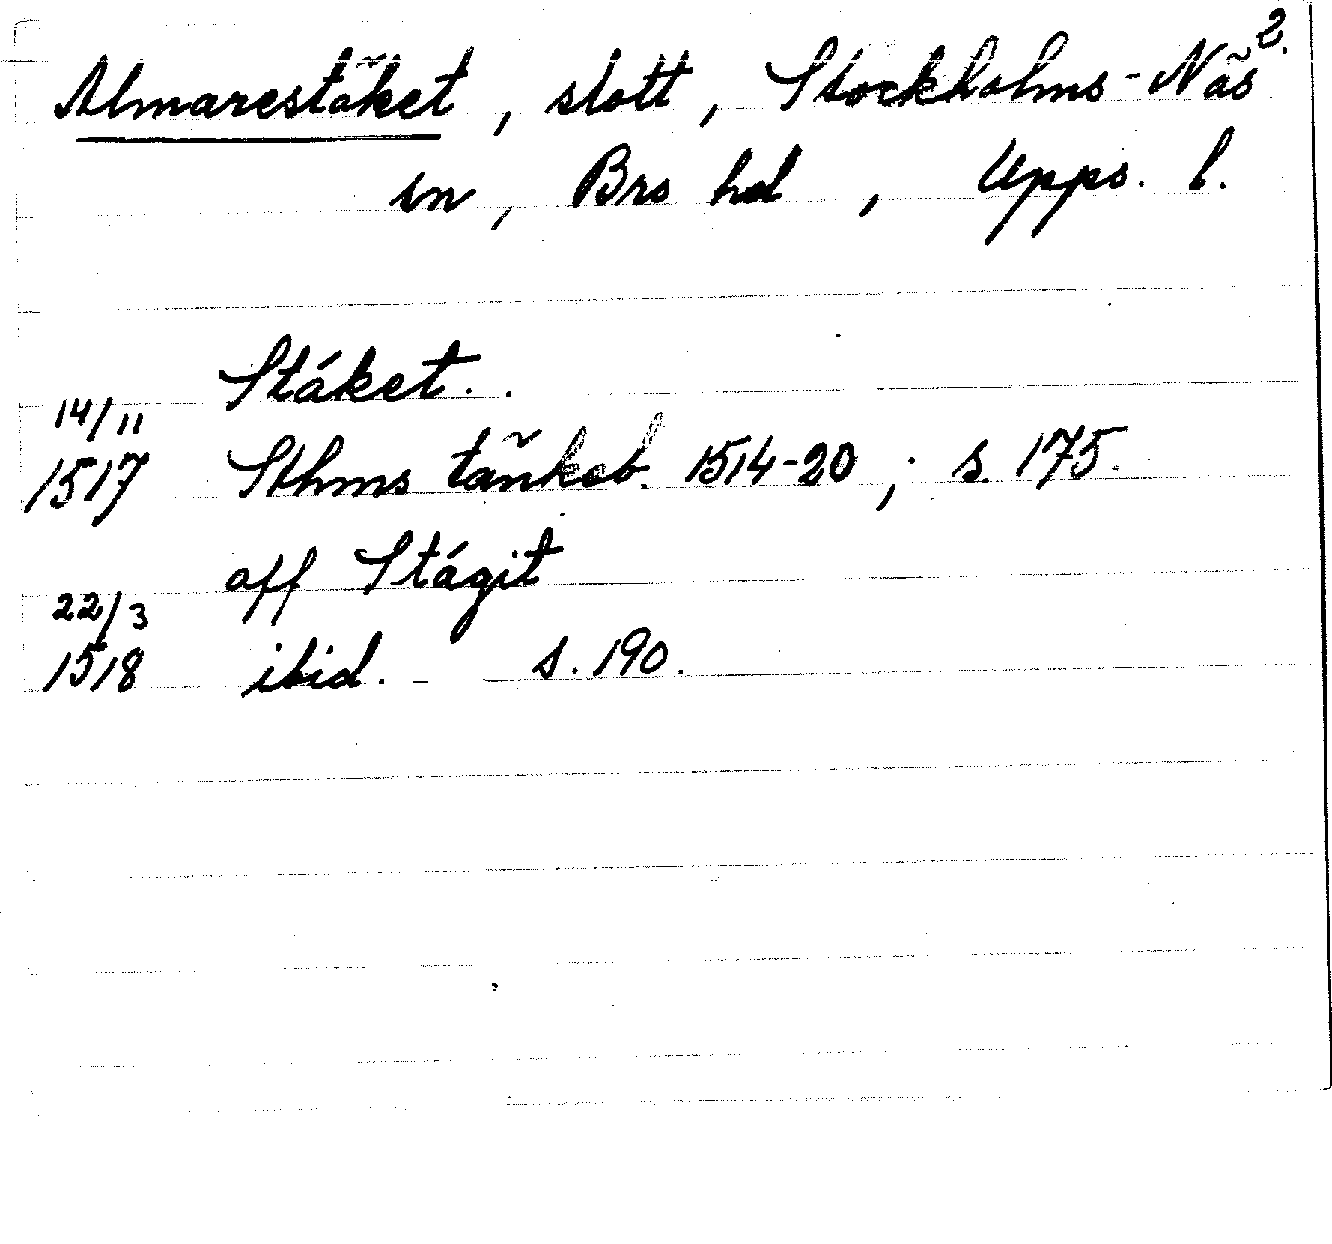 2.
Almarestäket, slott, Stockholms-Näs
sn, Bro hd, Upps. l.
Stáket.
14/11
1517 Sthms tänkeb. 1514-20; s. 175.
aff Stágit
22/3
1518 ibid. - s. 190.